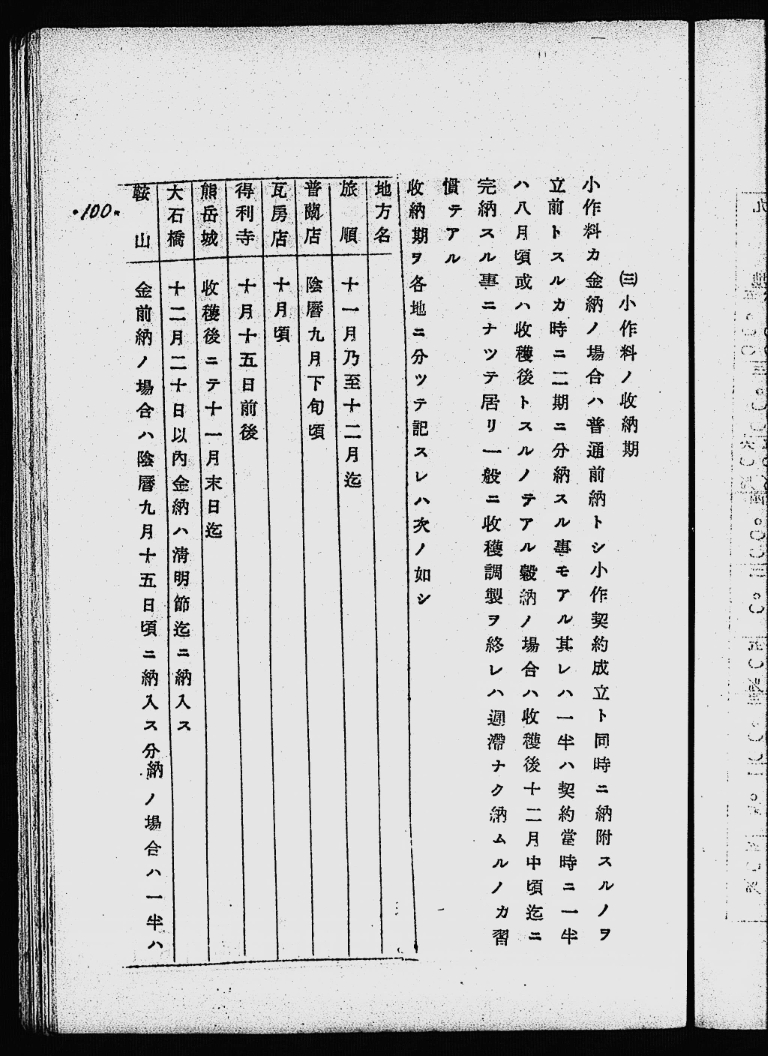 ㈢小作料ノ收納期
小作料カ金納ノ場合ハ普通前納トシ小作契約成立ト同時ニ納附スルノヲ
立前トスルカ時ニ二期ニ分納スル事モアル其レハ一半ハ契約當時ニ一半
ハ八月頃或ハ收穫後トスルノテアル穀納ノ場合ハ收穫後十二月中頃迄ニ
完納スル事ニナツテ居リ一般ニ收穫調製ヲ終レハ遲滯ナク納ムルノカ習
慣テアル
收納期ヲ各地ニ分ツテ記スレハ次ノ如シ
地方名
旅順 十一月乃至十二月迄
普蘭店 陰曆九月下旬頃
瓦房店 十月頃
得利寺 十月十五日前後
熊岳城 收穫後ニテ十一月末日迄
大石橋 十二月二十日以內金納ハ淸明節迄ニ納入ス
鞍山 金前納ノ場合ハ陰曆九月十五日頃ニ納入ス分納ノ場合ハ一半ハ
100